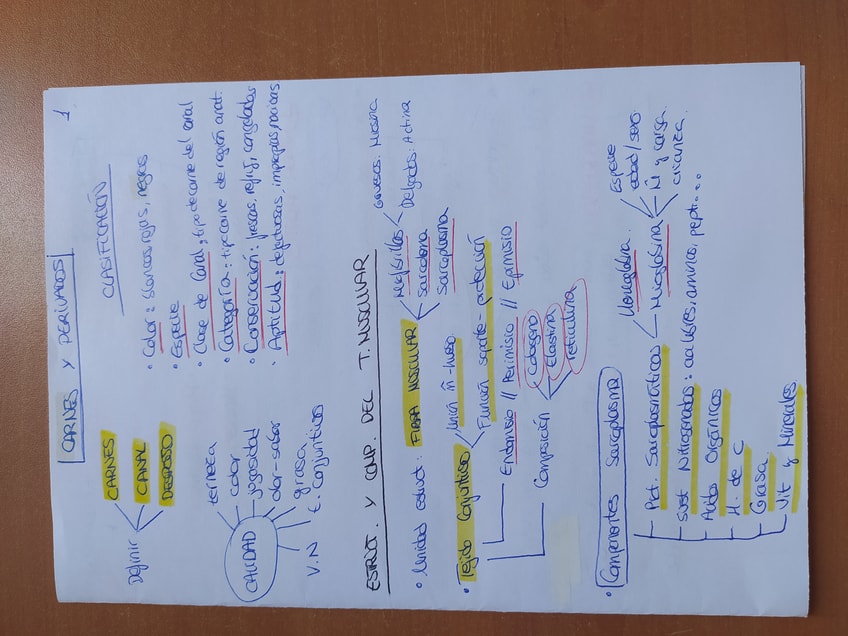 CARNES Y DERIVADOS
1
Definir
CARNES
CANAL
DESPOJO
CLASIFICACIÓN
• Color: blancas, rojas, negras
• Especie
• Clase de canal: tipo de carne del canal
• Categoría: tipo carne de región anat.
• Conservación: frescas, refrig, congeladas
• Aptitud: defectuosas, impropias, nocivas
CALIDAD
terneza
color
jugosidad
olor-sabor
grasa
t. Conjuntivos
V.N
ESTRUCT. Y COMP. DEL T. MUSCULAR
• Unidad estruct: FIBRA MUSCULAR
Miofibrillas
Gruesos: Miosina
Delgados: Actina
Sarcolema
Sarcoplasma
• Tejido Conjuntivo
Unión m̄-hueso
Función soporte-
Endomisio // Perimisio // Epimisio
Composición
Colágeno
Elastina
reticulina
• Componentes Sarcoplasma
Prot. Sarcoplasmáticas
Hemoglobina
Mioglobina
Especie
edad/sexo
m̄ y carga
crianza
Sust Nitrogenadas: aa libres, aminas, pept...
Ácidos Orgánicos
H. de C
Grasa
Vit y Minerales